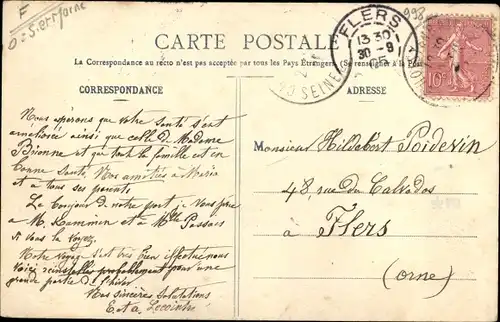 F
D: S. et Marne
998
CARTE POSTALE
La Correspondance au recto n'est pas acceptée par tous les Pays Étrangers. (Se renseigner à la Poste
FLERS
13 30
30 - 9
05
SEINE
10
CORRESPONDANCE
ADRESSE
Nous espérons que votre santé s'est
améliorée ainsi que celle de Madame
Brionne et que toute la famille est en
bonne santé. Nos amitiés à Maria
et à tous ses parents
Le bonjour de notre part je vous prie
à M. et à Mlle
si vous la voyez.
Notre voyage s'est très bien effectué nous
voici pour une
grande partie de l'hiver
Nos sincères salutations
E. et A. Lecointre
Monsieur Hildebert Poidevin
48, rue du Calvados
à Flers
(Orne)